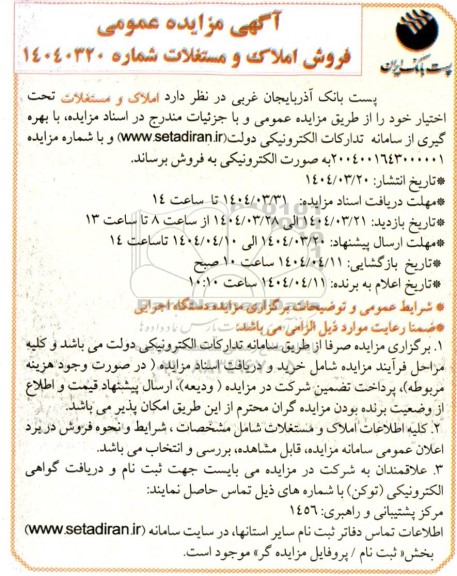 آگهی مزایده عمومی
فروش املاک و مستغلات شماره ۱۴۰۴۰۳۲۰
پست بانک ایران
پست بانک آذربایجان غربی در نظر دارد املاک و مستغلات تحت
اختیار خود را از طریق مزایده عمومی و با جزئیات مندرج در اسناد مزایده، با بهره
گیری از سامانه تدارکات الکترونیکی دولت(www.setadiran.ir) و با شماره مزایده
۲۰۰۴۰۰۱۶۴۳۰۰۰۰۰۱به صورت الکترونیکی به فروش برساند.
*تاریخ انتشار: ۱۴۰۴/۰۳/۲۰
*مهلت دریافت اسناد مزایده: ۱۴۰۴/۰۳/۳۱ تا ساعت ۱۴
*تاریخ بازدید: ۱۴۰۴/۰۳/۲۱ الی ۱۴۰۴/۰۳/۲۸ از ساعت ۸ تا ساعت ۱۳
*مهلت ارسال پیشنهاد: ۱۴۰۴/۰۳/۲۰ الی ۱۴۰۴/۰۴/۱۰ تاساعت ۱۴
*تاریخ بازگشایی: ۱۴۰۴/۰۴/۱۱ ساعت ۱۰ صبح
*تاریخ اعلام به برنده: ۱۴۰۴/۰۴/۱۱ ساعت ۱۰:۱۰
* شرایط عمومی و توضیحات برگزاری مزایده دستگاه اجرایی
*ضمنا رعایت موارد ذیل الزامی می باشد:
۱. برگزاری مزایده صرفا از طریق سامانه تدارکات الکترونیکی دولت می باشد و کلیه
مراحل فرآیند مزایده شامل خرید و دریافت اسناد مزایده ( در صورت وجود هزینه
مربوطه)، پرداخت تضمین شرکت در مزایده ( ودیعه)، ارسال پیشنهاد قیمت و اطلاع
از وضعیت برنده بودن مزایده گران محترم از این طریق امکان پذیر می باشد.
۲. کلیه اطلاعات املاک و مستغلات شامل مشخصات ، شرایط و نحوه فروش در برد
اعلان عمومی سامانه مزایده، قابل مشاهده، بررسی و انتخاب می باشد.
۳. علاقمندان به شرکت در مزایده می بایست جهت ثبت نام و دریافت گواهی
الکترونیکی (توکن) با شماره های ذیل تماس حاصل نمایند:
مرکز پشتیبانی و راهبری: ۱۴۵۶
اطلاعات تماس دفاتر ثبت نام سایر استانها، در سایت سامانه (www.setadiran.ir)
بخش« ثبت نام / پروفایل مزایده گر» موجود است.